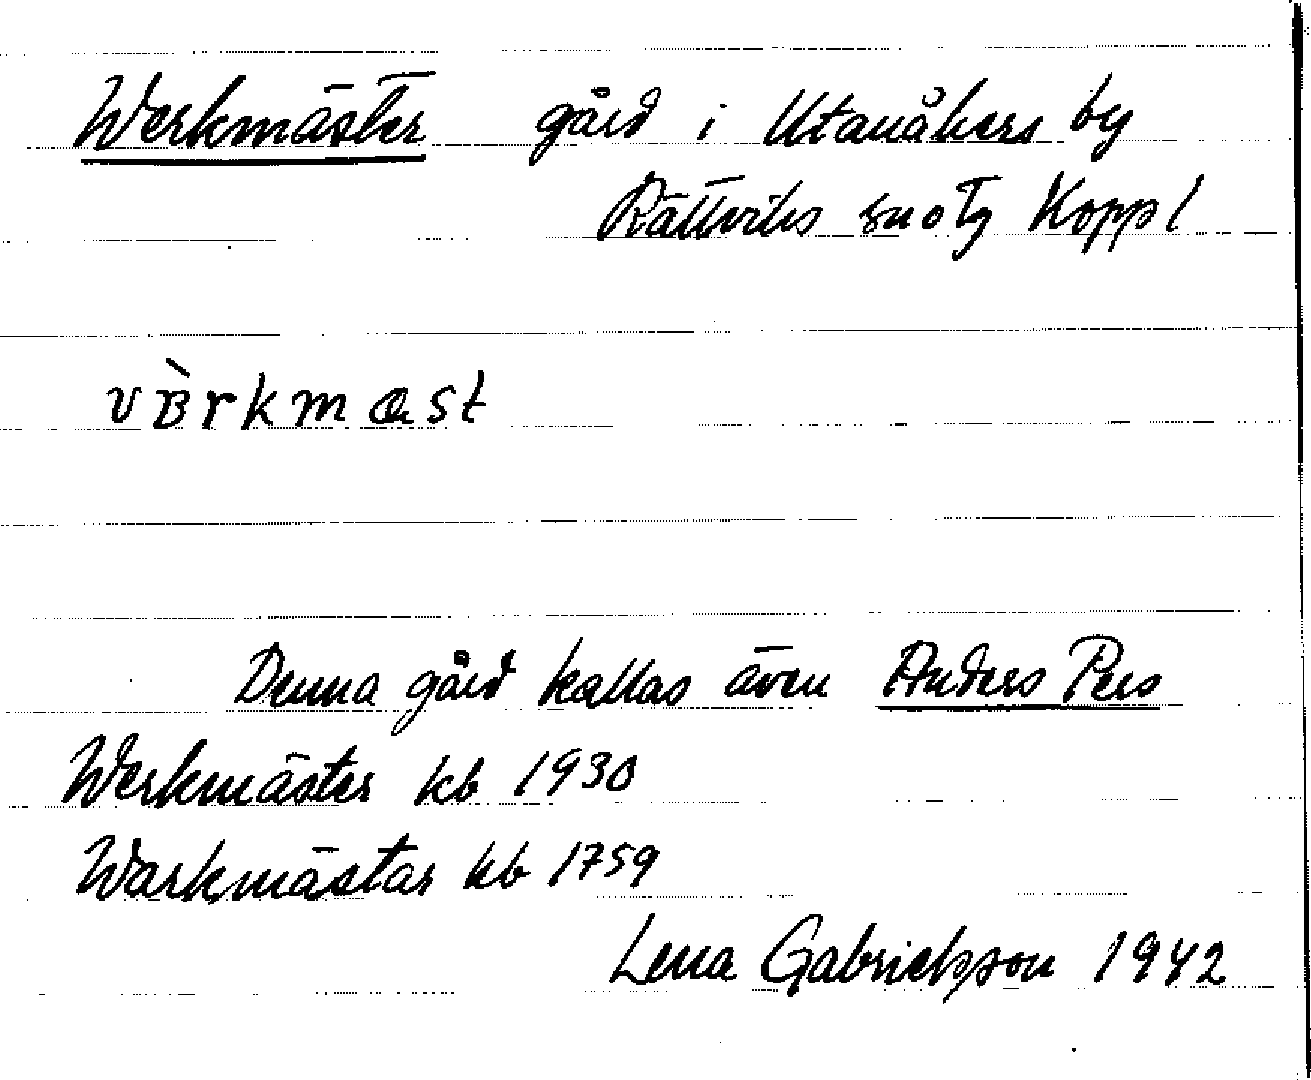 Werkmäster gård i Utanåkers by
Rättviks sn o tg Koppl
vɞ̀rkmæst
Denna gård kallas även Anders Pers
Werkmäster kb 1930
Warkmästar kb 1759
Lena Gabrielsson 1942